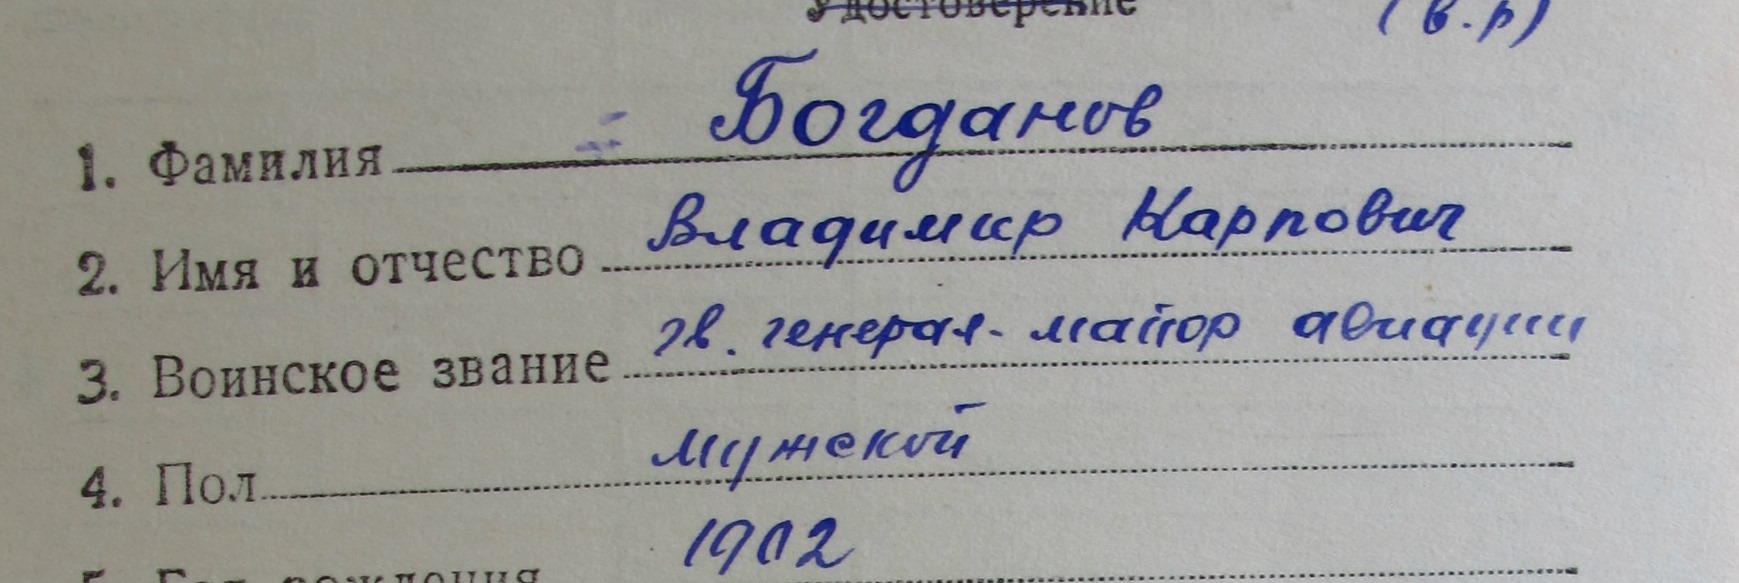 Удостоверение (в.р)
1. Фамилия Богданов
2. Имя и отчество Владимир Карпович
3. Воинское звание гв. генерал-майор авиации
4. Пол мужской
5. Год рождения 1902